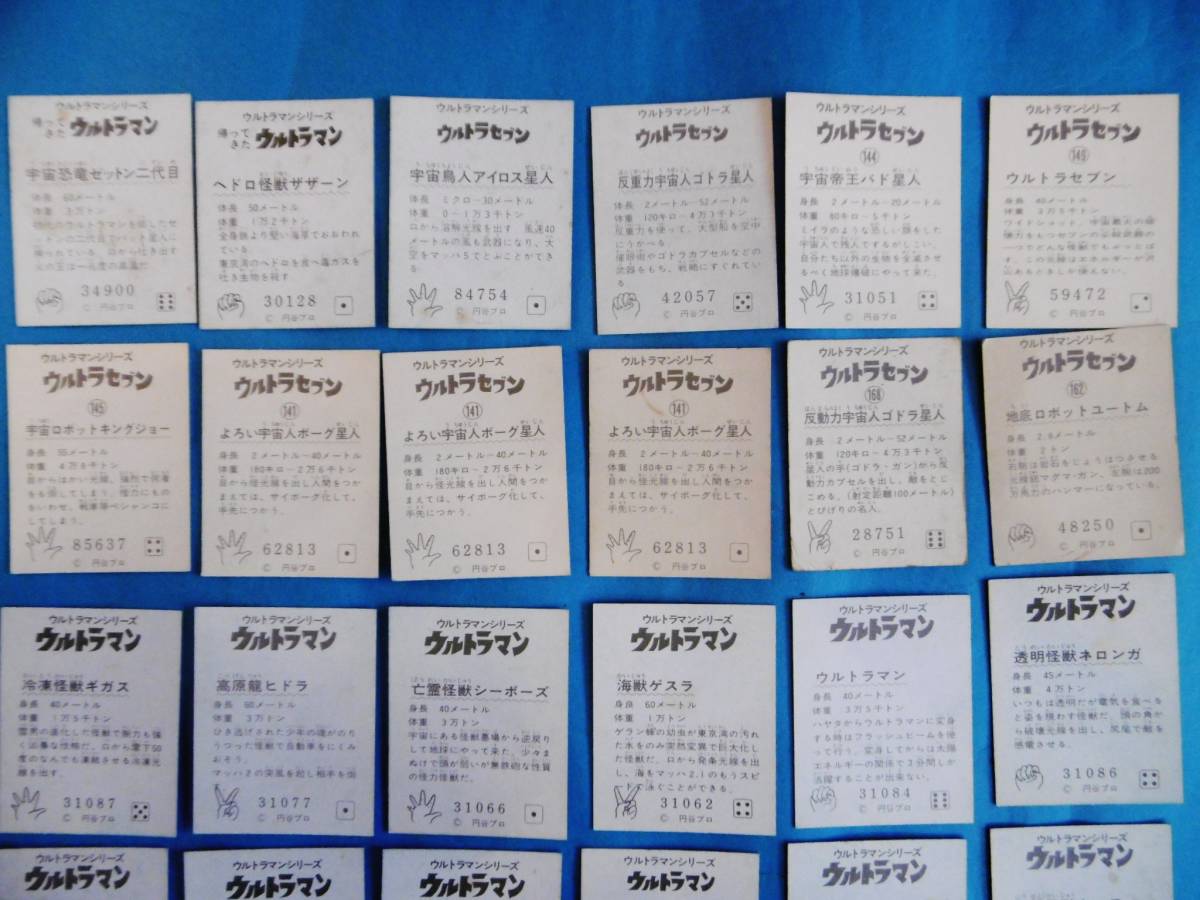 ウルトラマンシリーズ
帰って
きた ウルトラマン
宇宙恐竜ゼットン二代目
体長 60メートル
体重 3万トン
34900
© 円谷プロ
ウルトラマンシリーズ
帰って
きた ウルトラマン
ヘドロ怪獣ザザーン
体長 50メートル
体重 1万2千トン
全身鉄より堅い海草でおおわれ
ている。
東京湾のヘドロを食べ毒ガスを
吐き生物を殺す
30128
© 円谷プロ
ウルトラマンシリーズ
ウルトラセブン
宇宙鳥人アイロス星人
体長 ミクロ―30メートル
体重 0―1万3千トン
口から溶解光線を出す 風速40
メートルの風も武器になり、大
空をマッハ5でとぶことができ
る。
84754
© 円谷プロ
ウルトラマンシリーズ
ウルトラセブン
反重力宇宙人ゴトラ星人
体長 2メートル―52メートル
体重 120キロ―4万3千トン
反重力を使って、大型船を空中
にうかべる。
催眠術やゴトラカプセルなどの
武器をもち、戦略にすぐれてい
る
42057
© 円谷プロ
ウルトラマンシリーズ
ウルトラセブン
144
宇宙帝王バド星人
身長 2メートル―20メートル
体重 60キロ―5千トン
ミイラのような恐しい顔をした
宇宙人で残人でずるがしこい。
自分たち以外の生物を全滅させ
るべく地球爆破にやって来た。
31051
© 円谷プロ
ウルトラマンシリーズ
ウルトラセブン
ウルトラセブン
身長 40メートル
体重 3万5千トン
59472
© 円谷プロ
ウルトラマンシリーズ
ウルトラセブン
145
宇宙ロボットキングジョー
身長 55メートル
体重 4万8千トン
目からはかい光線、強烈で何者
をも倒してしまう。怪力にもの
をいわせ、戦車等ペシャンコに
してしまう。
85637
© 円谷プロ
ウルトラマンシリーズ
ウルトラセブン
141
よろい宇宙人ボーグ星人
身長 2メートル―40メートル
体重 180キロ―2万6千トン
目から怪光線を出し人間をつか
まえては、サイボーグ化して、
手先につかう。
62813
© 円谷プロ
ウルトラマンシリーズ
ウルトラセブン
141
よろい宇宙人ボーグ星人
身長 2メートル―40メートル
体重 180キロ―2万6千トン
目から怪光線を出し人間をつか
まえては、サイボーグ化して、
手先につかう。
62813
© 円谷プロ
ウルトラマンシリーズ
ウルトラセブン
141
よろい宇宙人ボーグ星人
身長 2メートル―40メートル
体重 180キロ―2万6千トン
目から怪光線を出し人間をつか
まえては、サイボーグ化して、
手先につかう。
62813
© 円谷プロ
ウルトラマンシリーズ
ウルトラセブン
168
反動力宇宙人ゴドラ星人
身長 2メートル―52メートル
体重 120キロ―4万3千トン
星人の手(ゴドラ・ガン)から反
動力カプセルを出し、敵をとじ
こめる。(射定距離100メートル)
とびげりの名人。
28751
© 円谷プロ
ウルトラマンシリーズ
ウルトラセブン
162
地底ロボットユートム
身長 2.8メートル
体重 2トン
右腕は岩石をじょうはつさせる
光線銃マグマ・ガン、左腕は200
万馬力のハンマーになっている。
48250
© 円谷プロ
ウルトラマンシリーズ
ウルトラマン
冷凍怪獣ギガス
身長 40メートル
体重 1万5千トン
雪男の進化した怪獣で腕力も強
く凶暴な性格だ。口から零下50
度のなんでも凍結させる冷凍光
線を出す。
31087
© 円谷プロ
ウルトラマンシリーズ
ウルトラマン
高原龍ヒドラ
身長 60メートル
体重 3万トン
ひき逃げされた少年の魂がのり
うつった怪獣で自動車をにくみ
おそう。
マッハ2の突風を起し相手を倒す
31077
© 円谷プロ
ウルトラマンシリーズ
ウルトラマン
亡霊怪獣シーボーズ
身長 40メートル
体重 3万トン
宇宙にある怪獣墓場から逆戻り
して地球にやって来た。少々ま
ぬけで頭が弱いが無鉄砲な性質
の怪力怪獣だ。
31066
© 円谷プロ
ウルトラマンシリーズ
ウルトラマン
海獣ゲスラ
身良 60メートル
体重 1万トン
ゲラン蜂の幼虫が東京湾の汚れ
た水をのみ突然変異で巨大化し
た怪獣だ。口から発条光線を出
し、海をマッハ2.1のもうスピー
ドで泳ぐことができる。
31062
© 円谷プロ
ウルトラマンシリーズ
ウルトラマン
ウルトラマン
身長 40メートル
体重 3万5千トン
ハヤタからウルトラマンに変身
する時はフラッシュビームを使
って行う。変身してからは太陽
エネルギーの関係で3分間しか
活躍することが出来ない。
31084
© 円谷プロ
ウルトラマンシリーズ
ウルトラマン
透明怪獣ネロンガ
身長 45メートル
体重 4万トン
いつもは透明だが電気を食べる
と姿を現わす怪獣だ。頭の角か
ら破壊光線を出し、尻尾で敵を
感電させる。
31086
© 円谷プロ
ウルトラマンシリーズ
ウルトラマン
ウルトラマンシリーズ
ウルトラマン
ウルトラマンシリーズ
ウルトラマン
ウルトラマンシリーズ
ウルトラマン
ウルトラマンシリーズ
ウルトラマン
ウルトラマンシリーズ
ウルトラマン